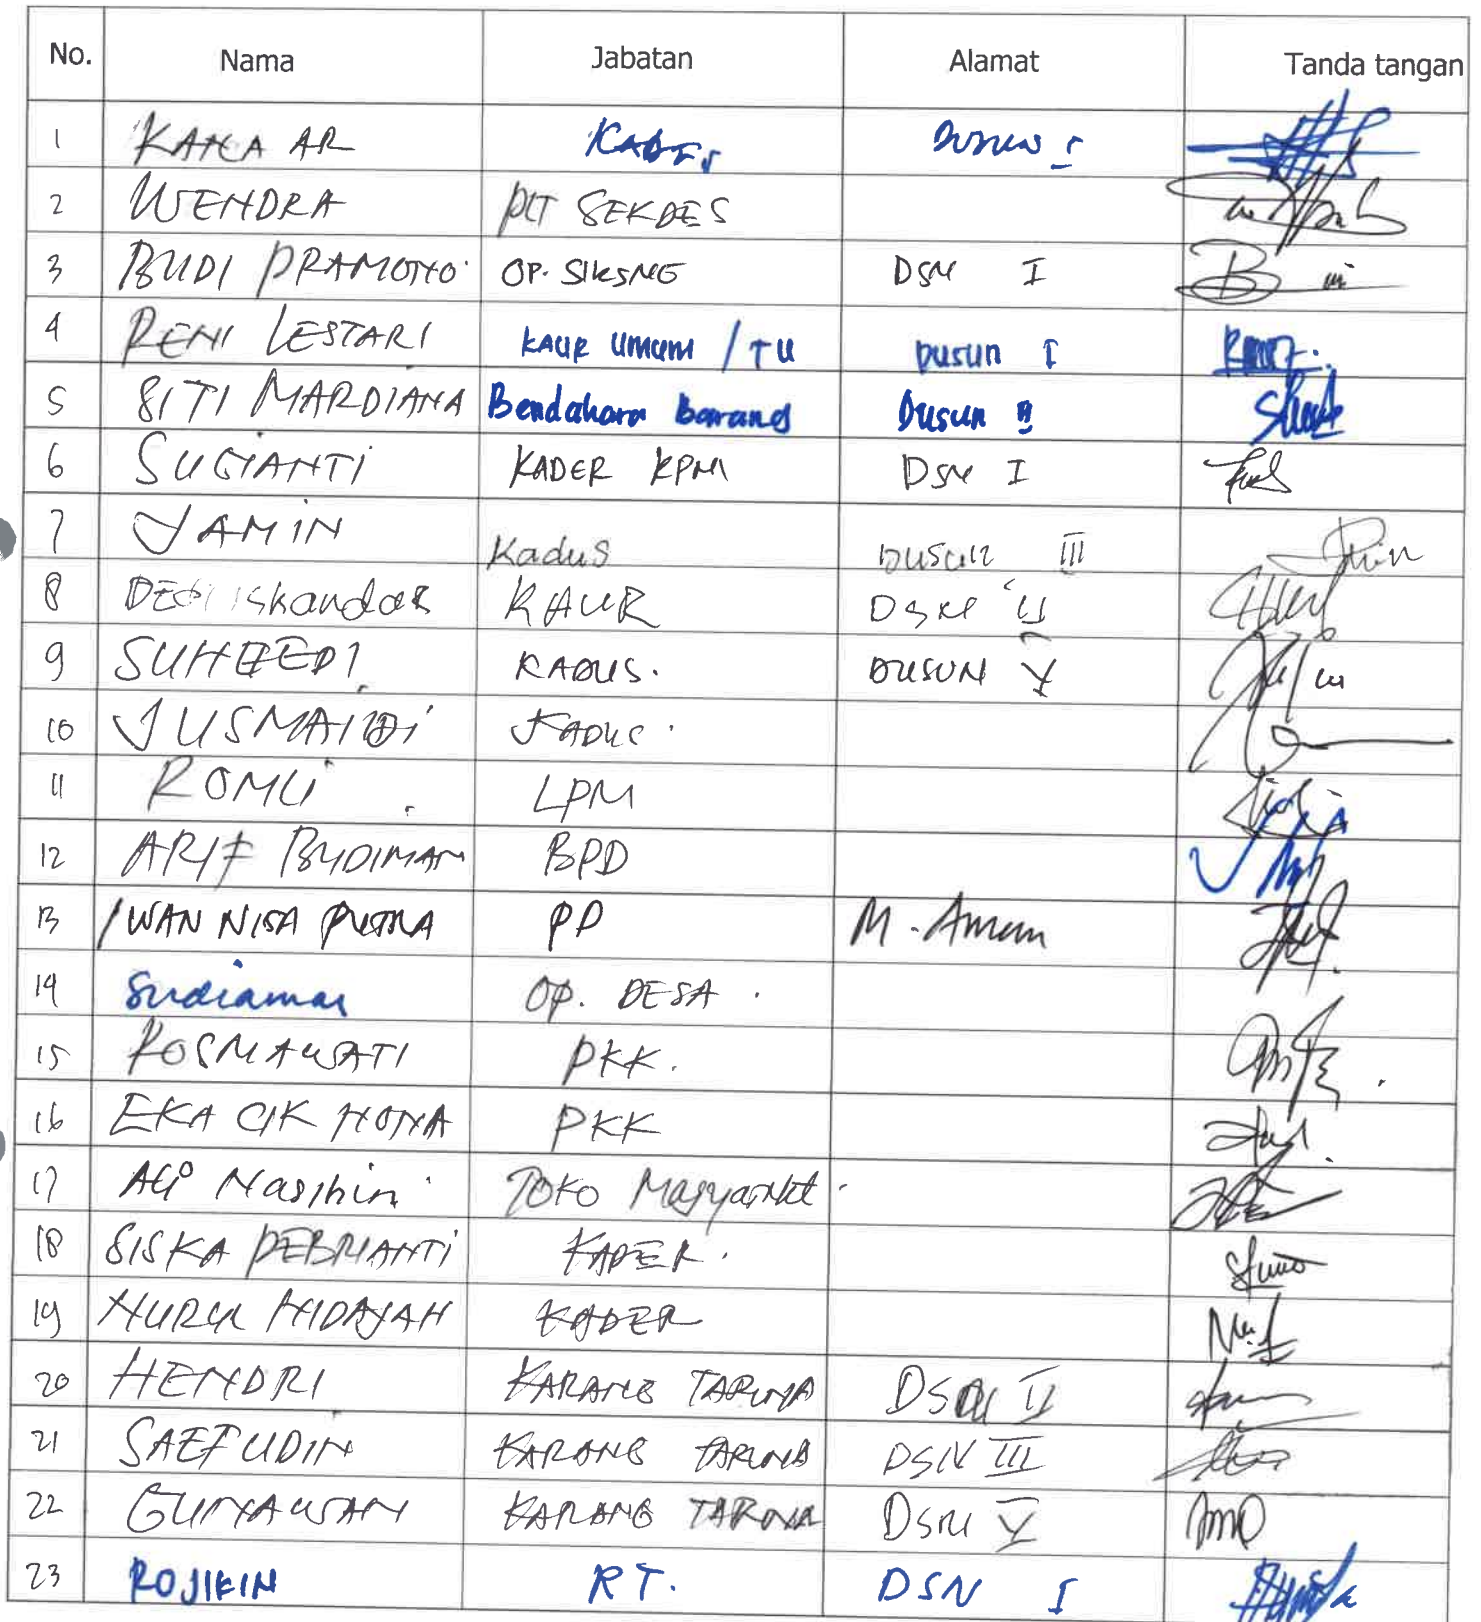 No. Nama Jabatan Alamat Tanda tangan
1 KANCA AR KADES DUSUN I
2 WENDRA PLT SEKDES
3 BUDI PRAMONO OP. SIKSNG DSN I
4 RENI LESTARI KAUR UMUM / TU DUSUN I
5 SITI MARDIANA Bendahara barang Dusun II
6 SUGIANTI KADER KPM DSN I
7 YAMIN Kadus DUSUN III
8 DEDI ISkandar KAUR DSN II
9 SUHEEDI KADUS. DUSUN V
10 JUSMAIDI KADUS.
11 ROMLI LPM
12 ARIF BUDIMAN BPD
13 IWAN NISA PUTRA PD M. Aman
14 Sudiamar OP. DESA
15 ROSMAWATI PKK.
16 EKA CIK NONA PKK
17 Ali Nasihin Toko Masyarakat
18 SISKA PEBRIANTI KADER.
19 NURUL HIDAYAH KADER
20 HENDRI KARANG TARUNA DSN II
21 SAEFUDIN KARANG TARUNA DSN III
22 GUNAWAN KARANG TARUNA DSN V
23 ROJIKIN RT. DSN I